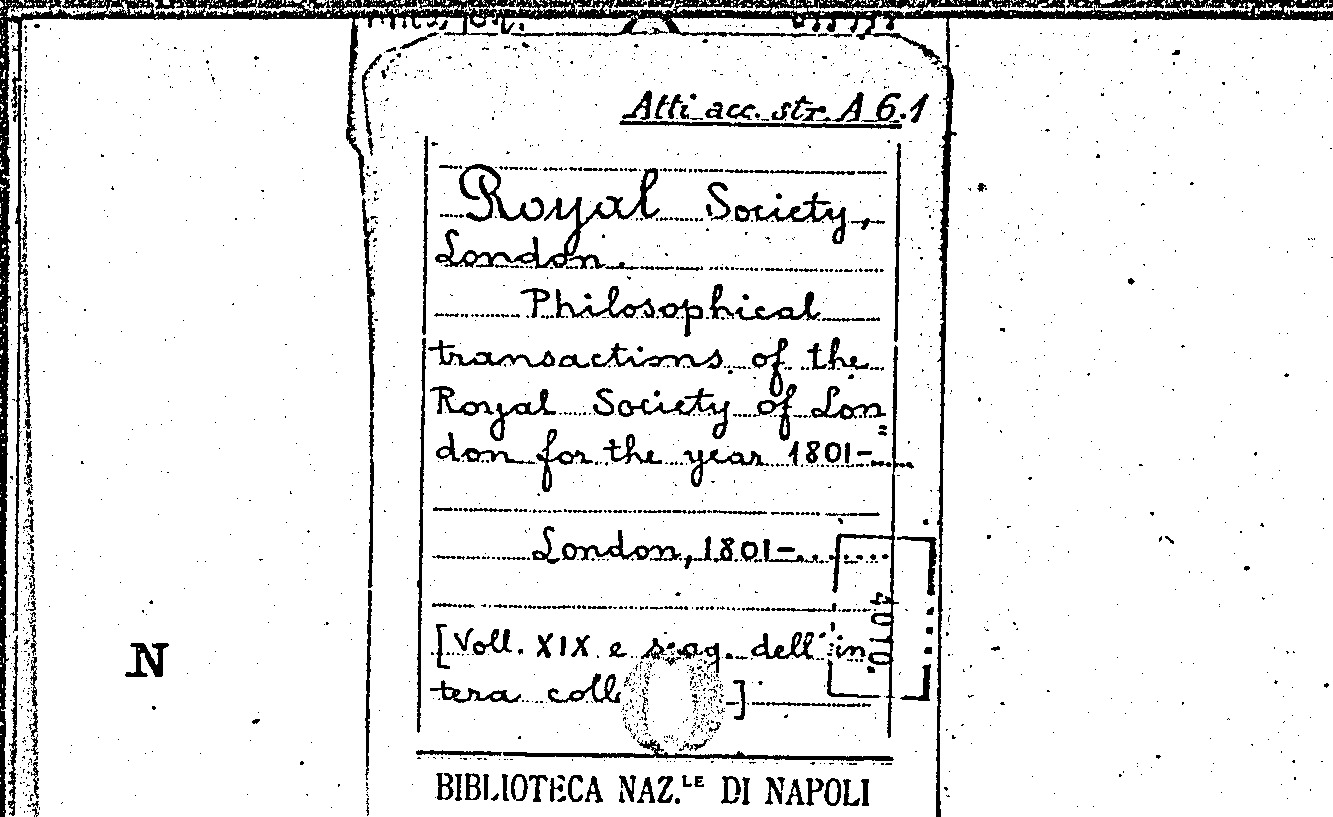 Atti acc. str. A 6.1
Royal Society,
London.
Philosophical
transactions of the
Royal Society of Lon
don for the year 1801-....
London, 1801-.......
4010.
[Voll. XIX e seg. dell'in
tera coll ]
N
BIBLIOTECA NAZ.LE DI NAPOLI